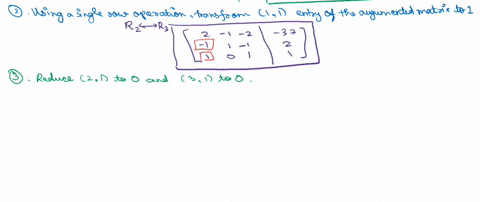 ②. Using a single row operation, transform (1,1) entry of the augmented matrix to 1
R₂↔R₃
[ 2 -1 -2 | -37 ]
[ -1 1 -1 | 2 ]
[ 1 0 1 | 1 ]
③. Reduce (2,1) to 0 and (3,1) to 0.